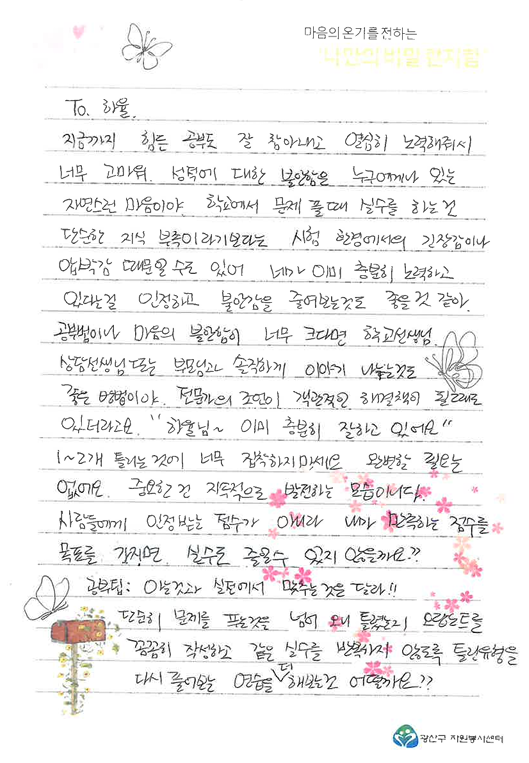 마음의 온기를 전하는
나만의 비밀 편지함
To. 하율.
지금까지 힘든 공부도 잘 참아내고 열심히 노력해줘서
너무 고마워. 성적에 대한 불안함은 누구에게나 있는
자연스런 마음이야. 학교에서 문제 풀때 실수를 하는건
단순한 지식 부족이라기보다는 시험 환경에서의 긴장감이나
압박감 때문일 수도 있어 네가 이미 충분히 노력하고
있다는걸 인정하고 불안감을 줄여보는것도 좋을 것 같아.
공부법이나 마음의 불안함이 너무 크다면 학교선생님,
상담선생님 또는 부모님과 솔직하게 이야기 나눠보는것도
좋은 방법이야. 전문가의 조언이 객관적인 해결책이 될때도
있더라고요. "하율님~ 이미 충분히 잘하고 있어요"
1~2개 틀리는 것에 너무 집착하지마세요 완벽할 필요는
없어요. 중요한 건 지속적으로 발전하는 모습이니까.
사람들에게 인정받는 점수가 아니라 내가 만족하는 점수를
목표를 갖으면 실수도 줄일수 있지 않을까요??
공부팁: 아는것과 실전에서 맞추는것은 달라!!
단순히 문제를 푸는것을 넘어 왜 틀렸는지 오답노트를
꼼꼼히 작성하고 같은 실수를 반복하지 않도록 틀린유형을
다시 풀어보는 연습을 더 해보는건 어떨까요??
광산구 자원봉사센터